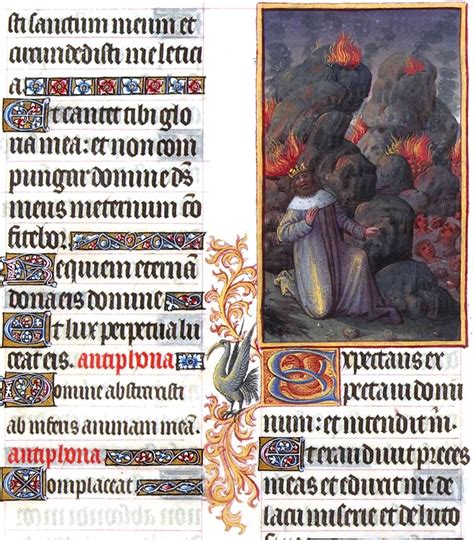 sti sanctum meum et
circundedisti me letici
a.
Et cantet tibi glo
ria mea: et non com
pungar domine dn̄s
meus in eternum cō
fitebor
Requiem eternam
dona eis domine
Et lux perpetua lu
ceat eis. antiphona
Domine abstraxisti
ab inferis animam meā.
antiphona
Complaceat
Expectans ex
pectaui domi
num: et intendit m̄.
Et exaudiuit preces
meas et eduxit me de
lacu miserie et de luto